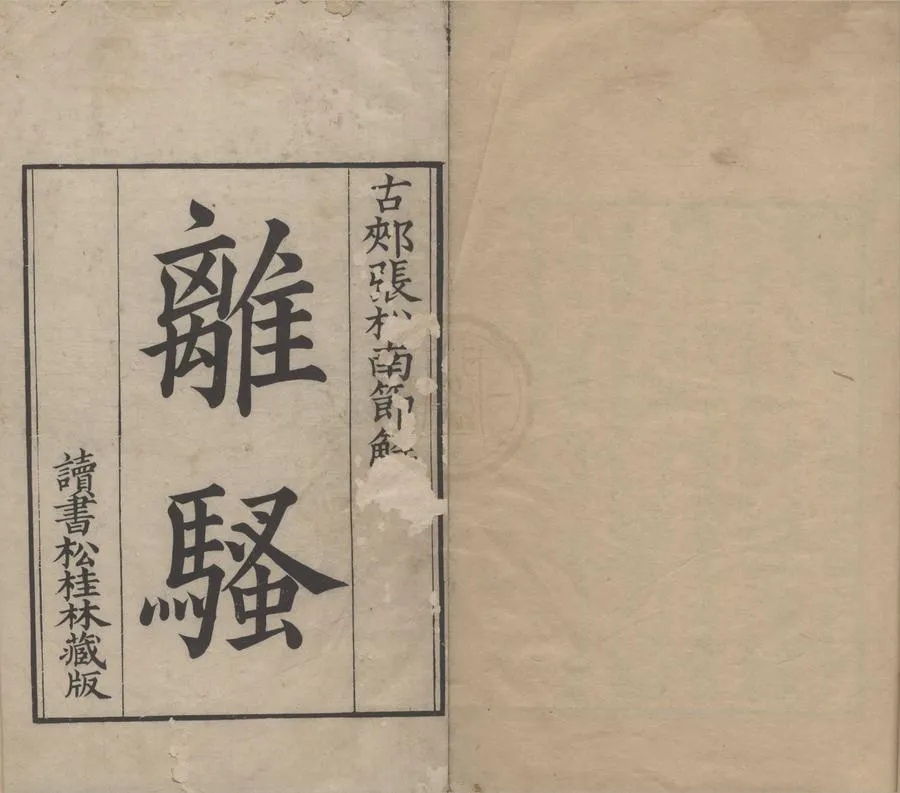 古郟張松南節解
離騷
讀書松桂林藏版